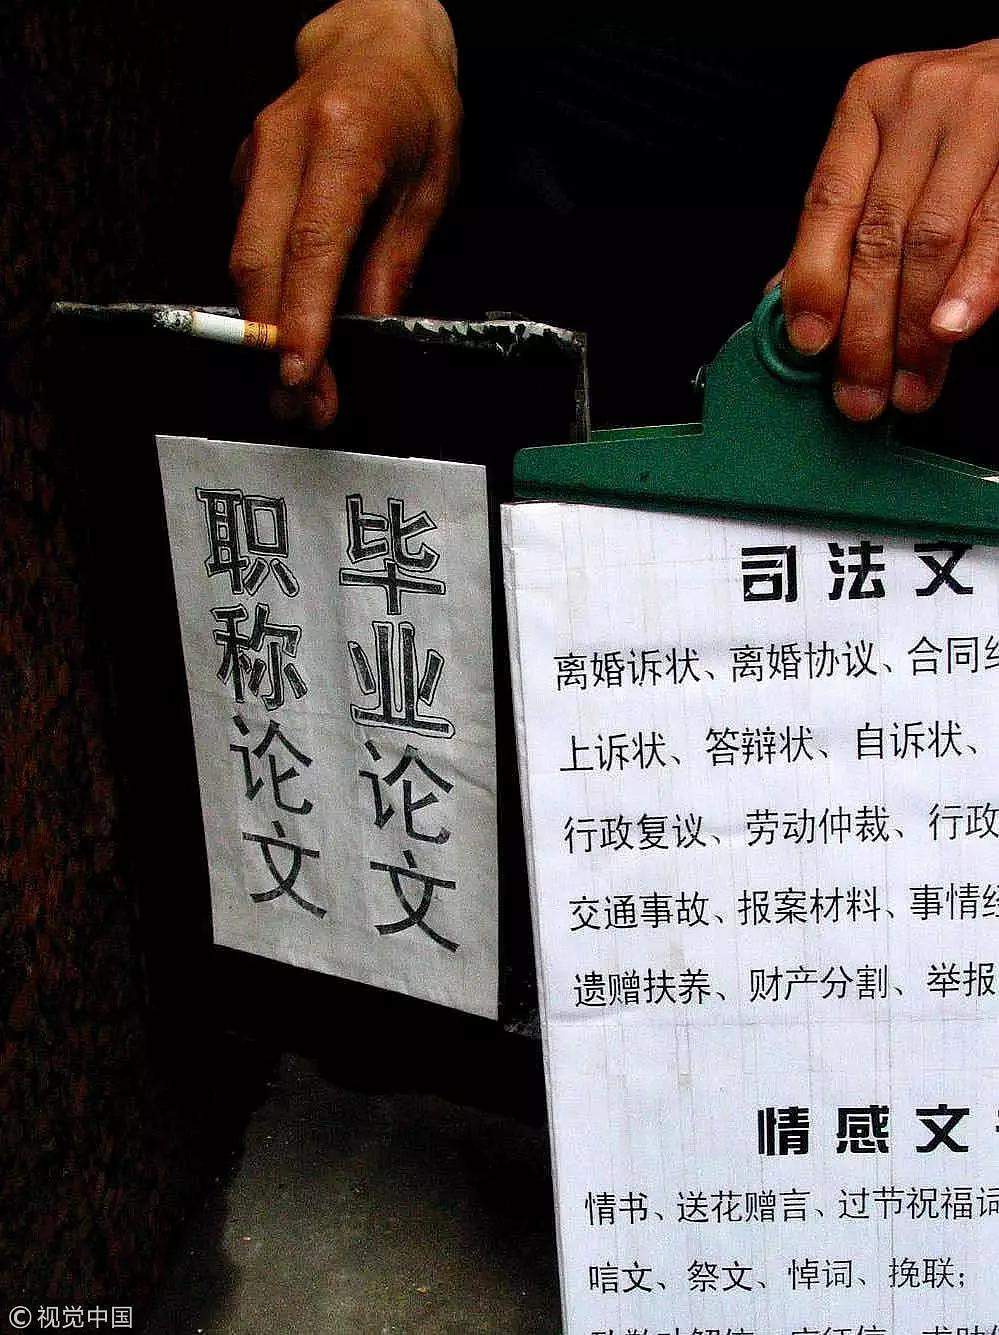 毕业论文
职称论文
司法文
离婚诉状、离婚协议、合同
上诉状、答辩状、自诉状、
行政复议、劳动仲裁、行政
交通事故、报案材料、事情经
遗赠扶养、财产分割、举报
情感文
情书、送花赠言、过节祝福词
唁文、祭文、悼词、挽联；
©视觉中国